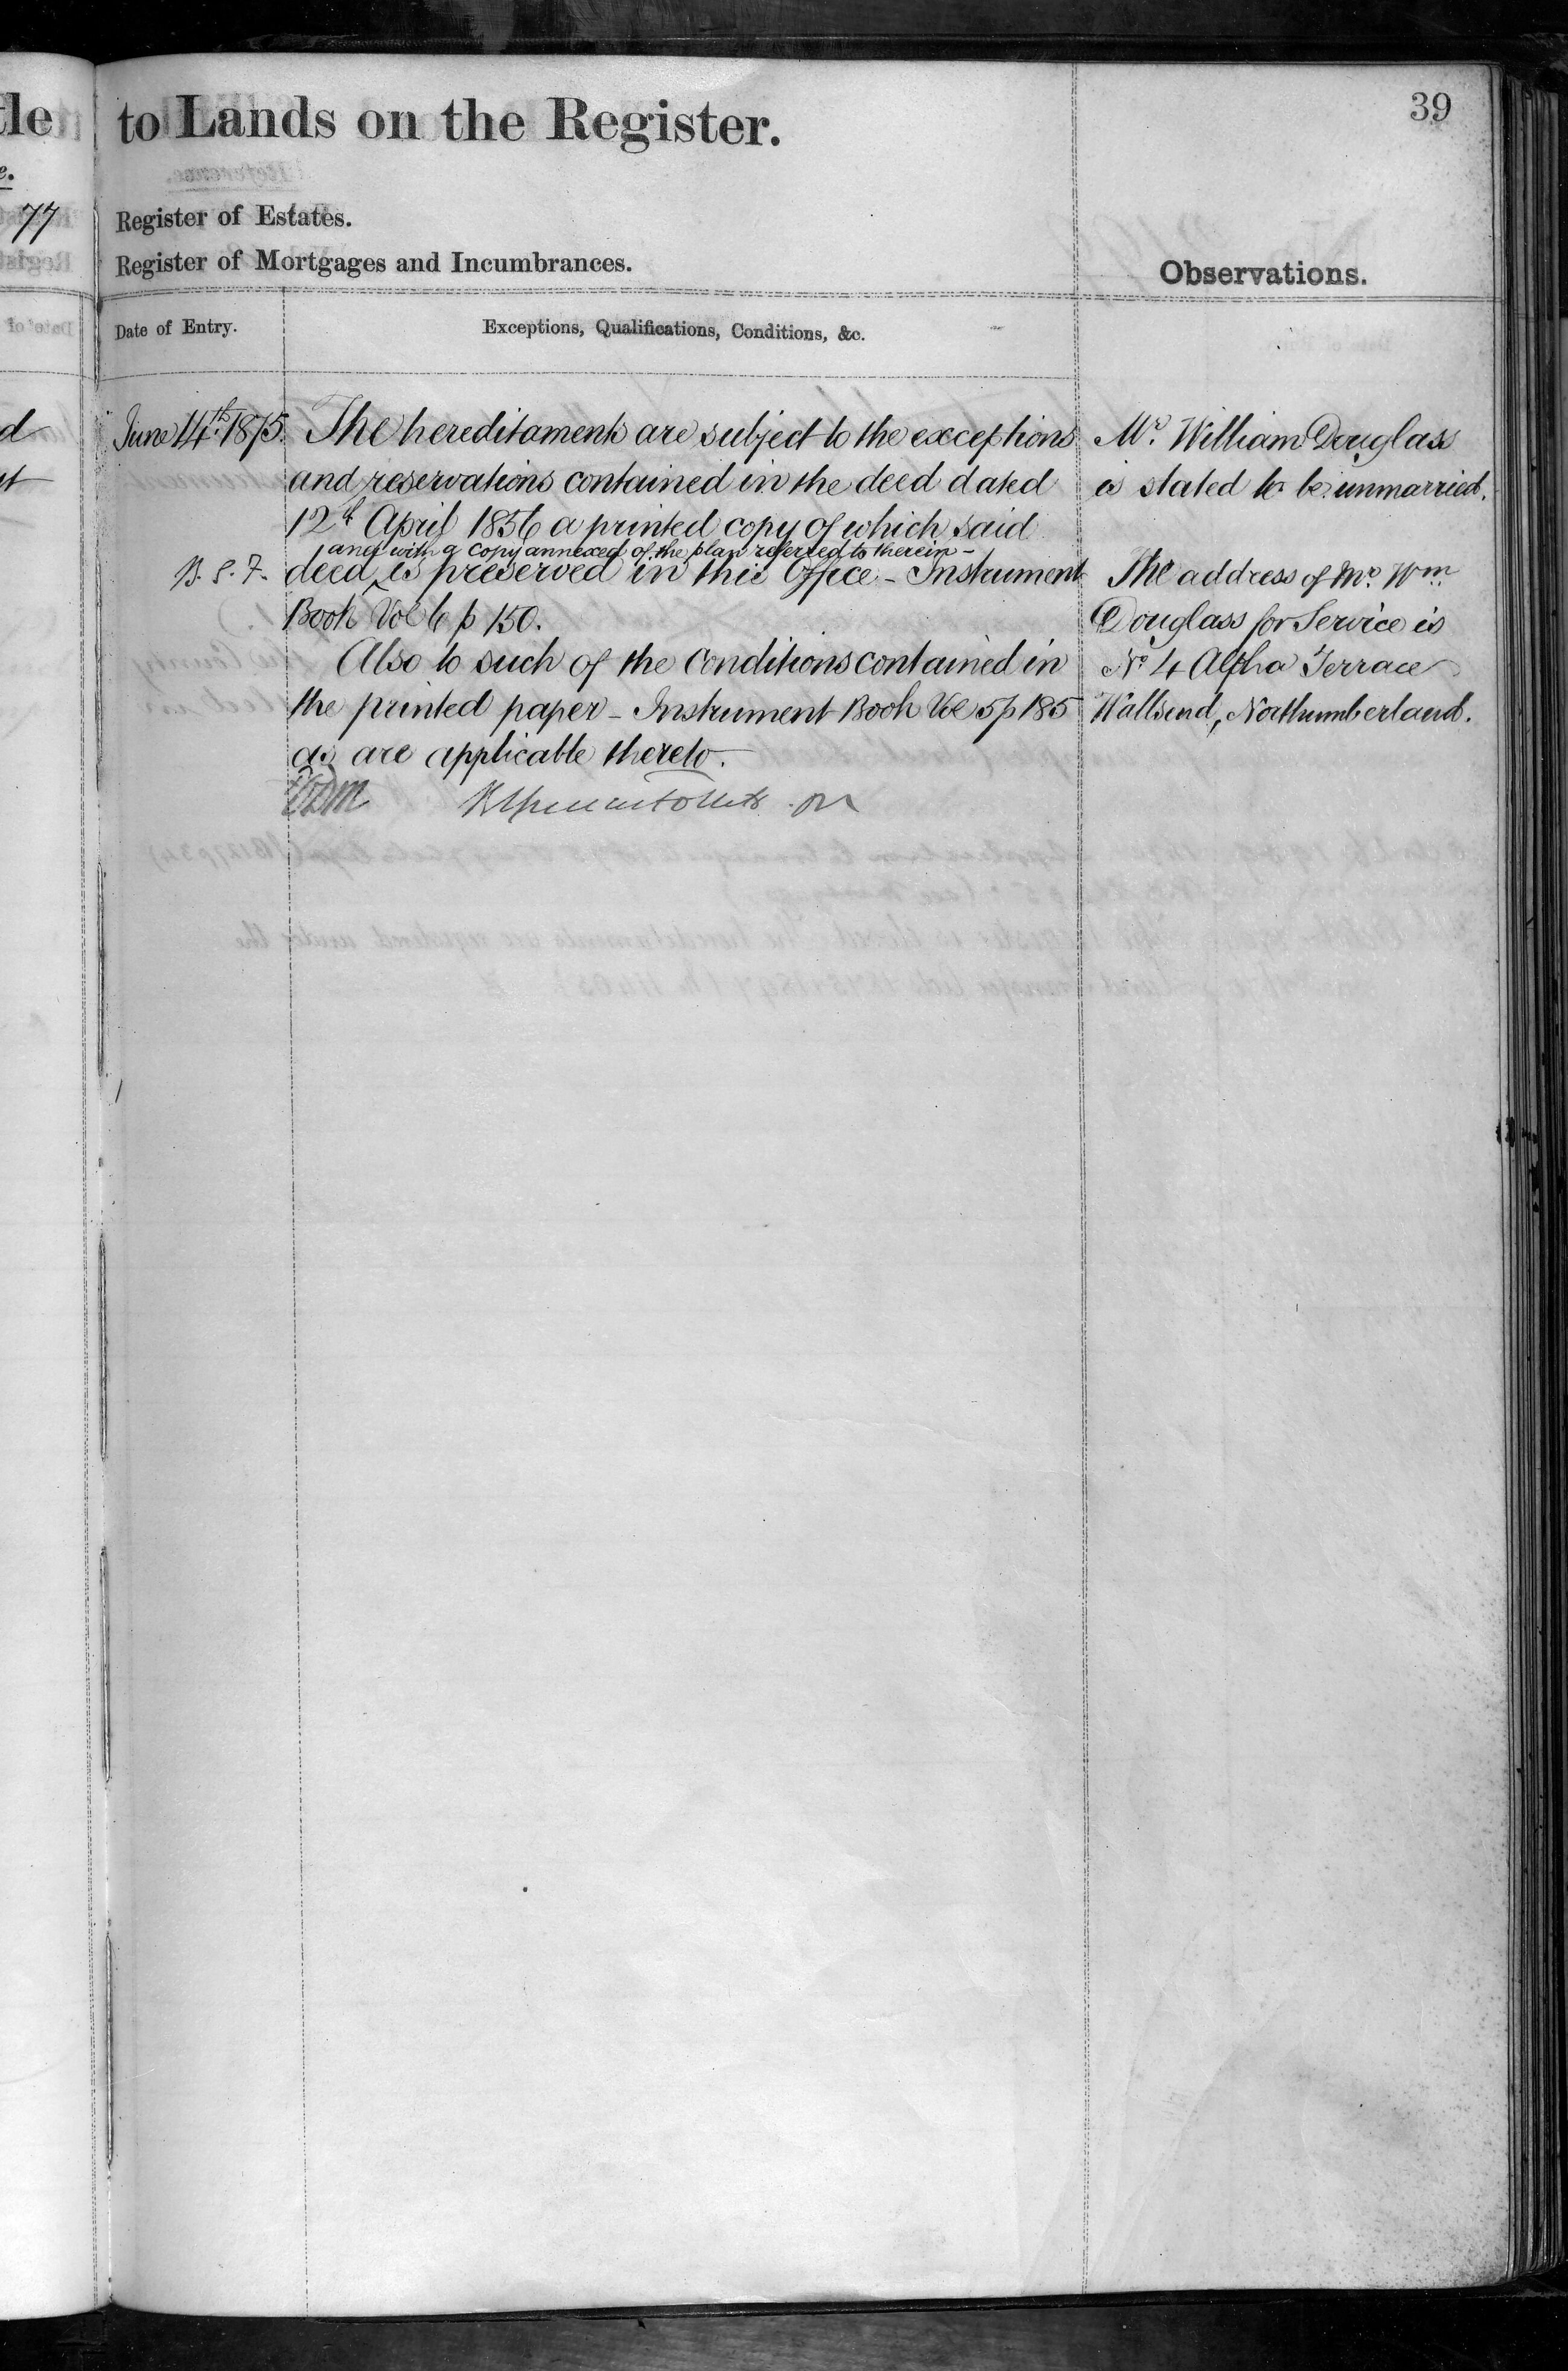 to Lands on the Register.
39
77
Register of Estates.
Register of Mortgages and Incumbrances.
Observations.
Date of Entry.
Exceptions, Qualifications, Conditions, &c.
June 14th. 1875.
The hereditaments are subject to the exceptions
and reservations contained in the deed dated
12th April 1856 a printed copy of which said
and with a copy annexed of the plan referred to therein -
B. S. F.
deed is preserved in this Office - Instrument
Book Vol 6 p 150.
Also to such of the Conditions contained in
the printed paper - Instrument Book Vol 5 p 185
as are applicable thereto.
Mr. William Douglass
is stated to be unmarried.
The address of Mr. Wm.
Douglass for Service is
No. 4 Alpha Terrace
Wallsend, Northumberland.